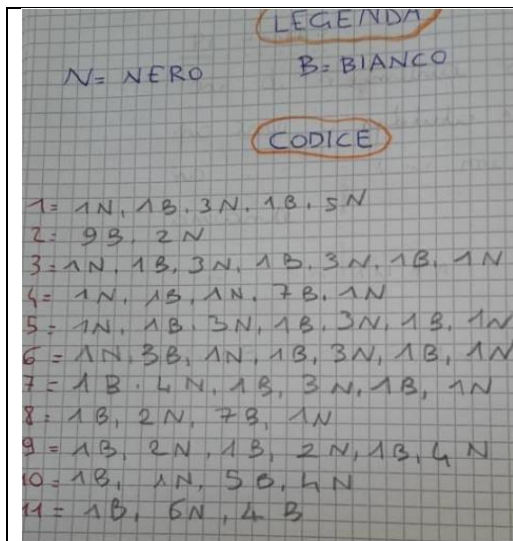 LEGENDA
N= NERO B= BIANCO
CODICE
1= 1N, 1B, 3N, 1B, 5N
2= 9B, 2N
3=1N, 1B, 3N, 1B, 3N, 1B, 1N
4= 1N, 1B, 1N, 7B, 1N
5= 1N, 1B, 3N, 1B, 3N, 1B, 1N
6= 1N, 3B, 1N, 1B, 3N, 1B, 1N
7= 1B, 4N, 1B, 3N, 1B, 1N
8= 1B, 2N, 7B, 1N
9= 1B, 2N, 1B, 2N, 1B, 4N
10= 1B, 1N, 5B, 4N
11= 1B, 6N, 4B